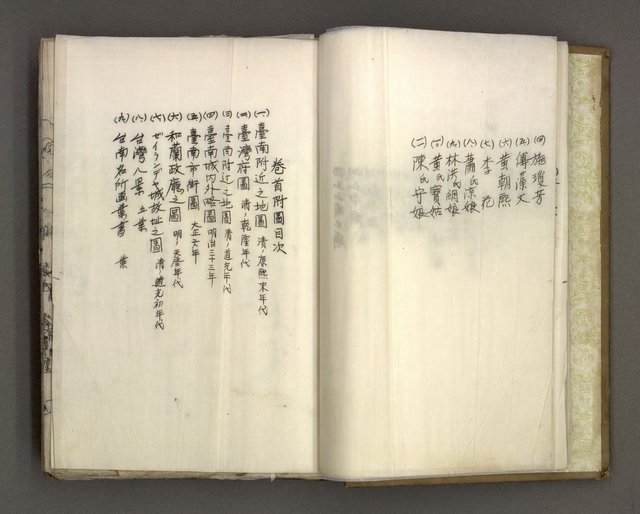 (四) 施瓊芳
(五) 陳漢文
(六) 黃朝熙
(七) 李花
(八) 蕭氏涼娘
(九) 林洪氏綢娘
(十) 黃氏寶姑
(二) 陳氏守娘
卷首附圖目次
(一) 臺南附近之地圖 清ノ康熙末年代
(二) 臺灣府圖 清ノ乾隆年代
(三) 臺南附近之地圖 清ノ道光年代
(四) 臺南城內外略圖 明治三十三年
(五) 臺南市街圖 大正六年
(六) 和蘭政廳之圖 明ノ天啓年代
(七) ゼイランヂヤ城故址之圖 清道光初年代
(八) 台灣八景 五葉
(九) 台南名所画葉書 葉